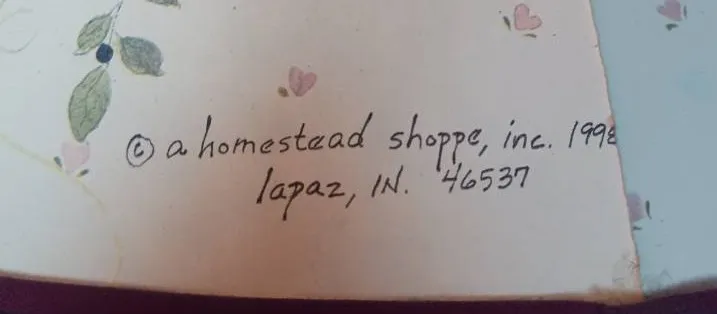 © a homestead shoppe, inc. 1998
lapaz, IN. 46537